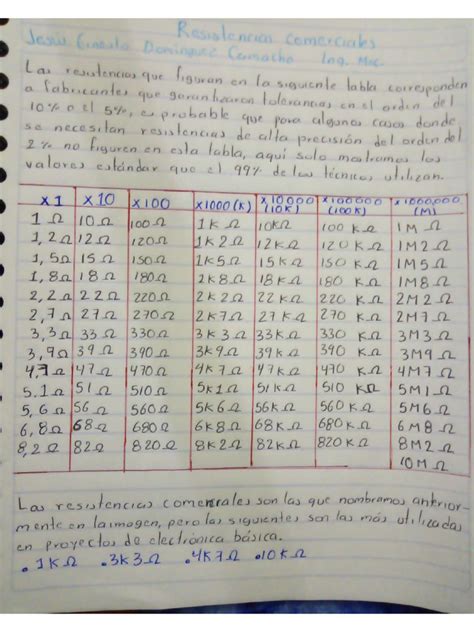 Resistencias comerciales
Jesús Cirilo Domínguez Camacho Ing. Mec.
Las resistencias que figuran en la siguiente tabla corresponden
a fabricantes que garantizaron tolerancias en el orden del
10% o el 5%, es probable que para algunos casos donde
se necesitan resistencias de alta precisión del orden del
2% no figuren en esta tabla, aquí solo mostramos los
valores estándar que el 99% de los técnicos utilizan.
x1 x10 x100 x1000(K) x10000 (10K) x100000 (100K) x1000,000 (M)
1 Ω 10 Ω 100 Ω 1K Ω 10KΩ 100 KΩ 1M Ω
1,2 Ω 12 Ω 120 Ω 1K2 Ω 12K Ω 120 K Ω 1M2 Ω
1,5 Ω 15 Ω 150 Ω 1K5 Ω 15K Ω 150 K Ω 1M5 Ω
1,8 Ω 18 Ω 180 Ω 2K8 Ω 18K Ω 180 K Ω 1M8 Ω
2,2 Ω 22 Ω 220 Ω 2K2 Ω 22 K Ω 220 K Ω 2M2 Ω
2,7 Ω 27 Ω 270 Ω 2K7 Ω 27K Ω 270 K Ω 2M7 Ω
3,3 Ω 33 Ω 330 Ω 3K3 Ω 33K Ω 330 K Ω 3M3 Ω
3,9 Ω 39 Ω 390 Ω 3K9 Ω 39K Ω 390 K Ω 3M9 Ω
4,7 Ω 47 Ω 470 Ω 4K7 Ω 47K Ω 470 K Ω 4M7 Ω
5.1 Ω 51 Ω 510 Ω 5K1 Ω 51K Ω 510 K Ω 5M1 Ω
5,6 Ω 56 Ω 560 Ω 5K6 Ω 56K Ω 560 K Ω 5M6 Ω
6,8 Ω 68 Ω 680 Ω 6K8 Ω 68K Ω 680 K Ω 6M8 Ω
8,2 Ω 82 Ω 820 Ω 8K2 Ω 82K Ω 820 K Ω 8M2 Ω
10M Ω
Las resistencias comerciales son las que nombramos anterior-
mente en la imagen, pero las siguientes son las más utilizadas
en proyectos de electrónica básica.
.1K Ω .3K3 Ω .4K7 Ω .10K Ω